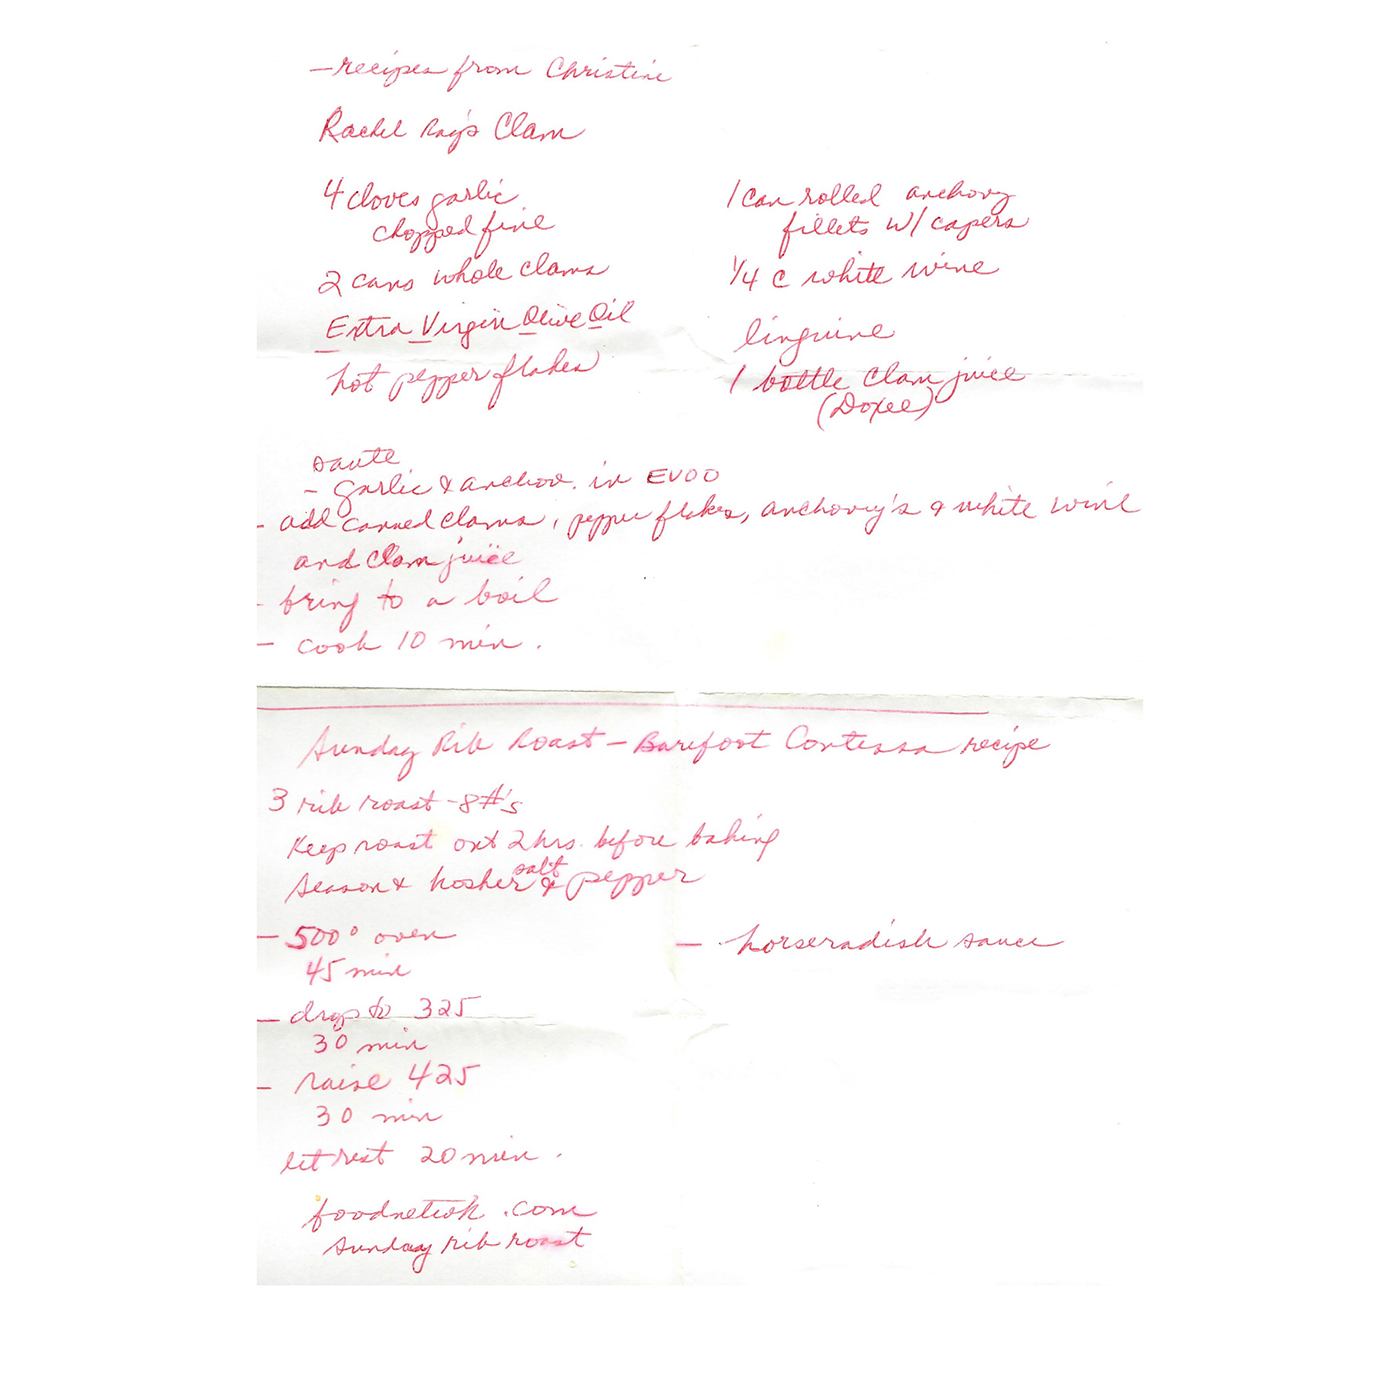 - recipes from Christine
Rachel Ray's Clam
4 cloves garlic
chopped fine
2 cans whole clams
Extra Virgin Olive Oil
hot pepper flakes
1 can rolled anchovy
fillets w/ capers
1/4 c white wine
linguine
1 bottle clam juice
(Doxee)
saute
- garlic & anchov. in EVOO
- add canned clams, pepper flakes, anchovy's & white wine
and clam juice
- bring to a boil
- cook 10 min.
Sunday Rib Roast - Barefoot Contessa recipe
3 rib roast - 8#'s
Keep roast out 2 hrs. before baking
season & kosher salt & pepper
- 500° oven
45 min
- drop to 325
30 min
- raise 425
30 min
let rest 20 min.
- horseradish sauce
foodnetwk.com
Sunday rib roast